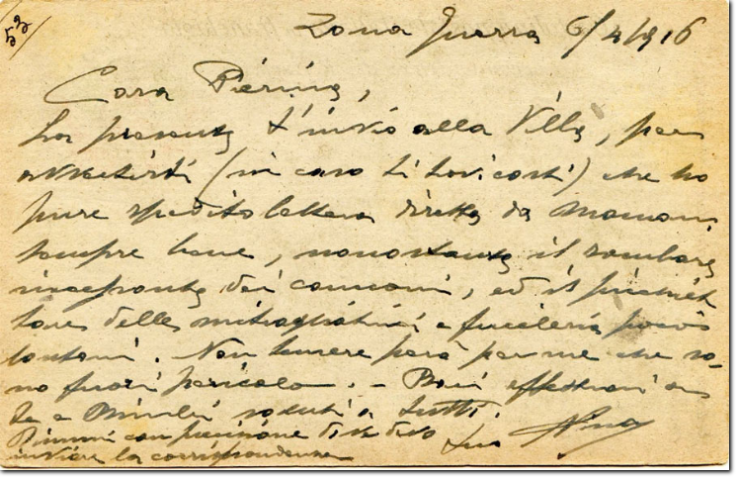 53
Zona Guerra 6/4/1916
Cara Pierina,
La presente t'invio alla Villa, per
avvertirti (in caso ti trovi costì) che ho
pure spedito lettera diretta da Mamma.
Sempre bene, nonostante il rombare
incessante dei cannoni, ed il picchiet
tare delle mitragliatrici e fucileria poco
lontani. Non temere però per me che so-
no fuori pericolo. - Baci affettuosi a
te e Bimbi saluti a tutti.
Dimmi con precisione dove devo Tuo Nino
inviare la corrispondenza